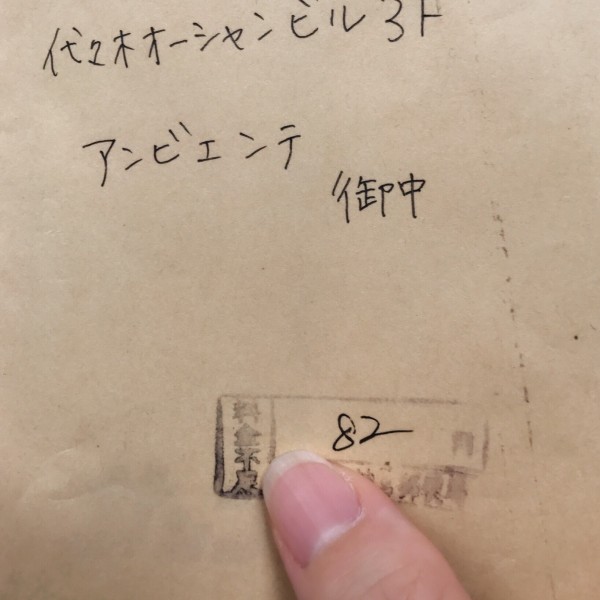 代々木オーシャンビル3F
アンビエンテ
御中
料金不足
82 円